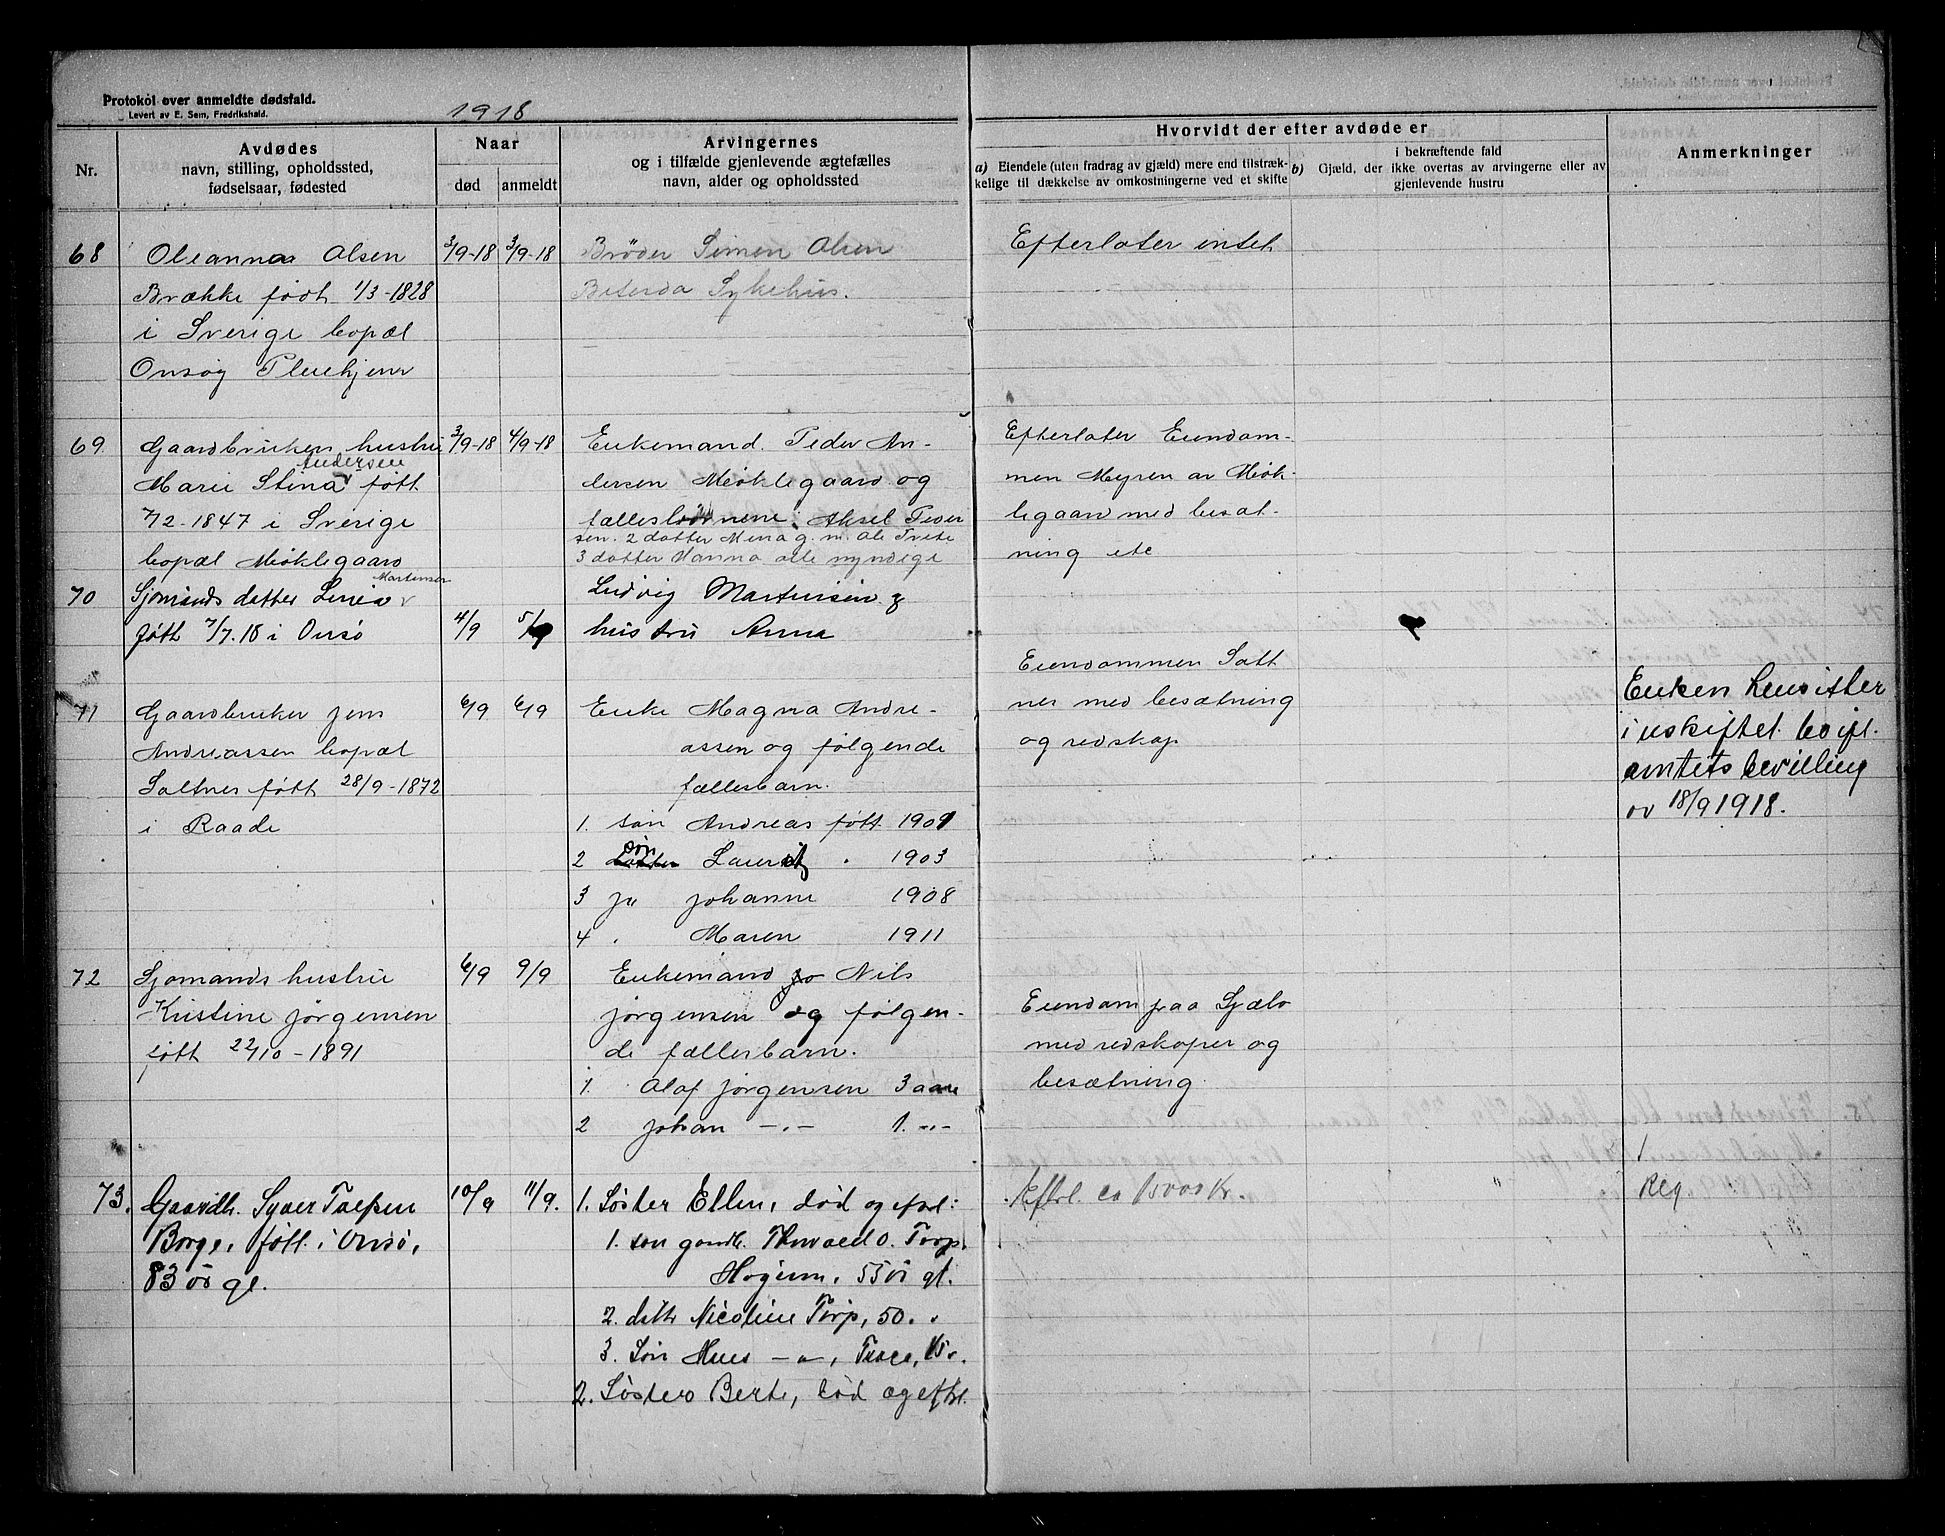 Protokol over anmeldte dødsfald.
Levert av E. Sem, Fredrikshald.
1918
Nr.
Avdødes
navn, stilling, opholdssted,
fødselsaar, fødested
Naar
død
anmeldt
Arvingernes
og i tilfælde gjenlevende ægtefælles
navn, alder og opholdssted
Hvorvidt der efter avdøde er
a) Eiendele (uten fradrag av gjæld) mere end tilstræk-
kelige til dækkelse av omkostningerne ved et skifte
i bekræftende fald
b) Gjæld, der ikke overtas av arvingerne eller av
gjenlevende hustru
Anmerkninger
68
Oleanna Olsen
Brække født 1/3-1828
i Sverige bopæl
Onsøy Pleiehjem
3/9-18
3/9-18
Brøder Simen Olsen
Sykehus.
Efterlater intet
69
Gaardbrukers hustru
Andersen
Marie Stina født
7/2-1847 i Sverige
bopæl Møklegaard
3/9-18
4/9-18
Enkemand. Peder An-
dersen Møklegaard og
fællesbørnene: Aksel Peder
sen. 2 datter Mina g. m. Ole
3 datter Hanna alle myndige
Efterlater Eiendom-
men Myren av Møk-
legaard med besæt-
ning etc
70
Martinsen
Sjømands datter
født 7/7.18 i Onsø
4/9
5/9
Ludvig Martinsen &
hustru Anna
71
Gaardbruker Jens
Andreassen bopæl
Saltnes født 28/9-1872
i Raade
6/9
6/9
Enke Magna Andre-
assen og følgende
fællesbarn.
1. søn Andreas født 1901
søn
2 Lauritz " 1903
3 Johanne 1908
4 " Maren 1911
Eiendommen Salt
nes med besætning
og redskap
Enken hensitter
i uskiftet bo ifl.
amtets bevilling
av 18/9 1918.
72
Sjømands hustru
Kristine Jørgensen
født 22/10-1891
6/9
9/9
Enkemand Nils
Jørgensen og følgen-
de fællesbarn.
1 Olaf Jørgensen 3 aar
2 Johan -"- 1. -"-
Eiendom paa
med redskaper og
besætning
73.
Gaardb. Syver
Borge, født i Onsø,
83 år gl.
10/9
11/9.
1. Søster Ellen, død og efterl:
1. søn gaardb. Thorvald O. Torp,
55 år gl.
2. dattr Nicoline Torp, 50. "
3. Søn -"-
2. Søster Berte, død og efterl.
Efterl. ca 15000 Kr.
Reg